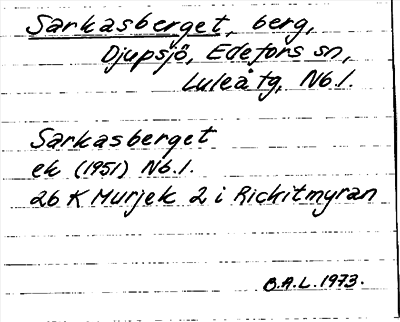 Sarkasberget, berg,
Djupsjö, Edefors sn,
Luleå tg, Nb.l.
Sarkasberget
ek (1951) Nb.l.
26 K Murjek 2 i Rickitmyran
B.A.L. 1973.